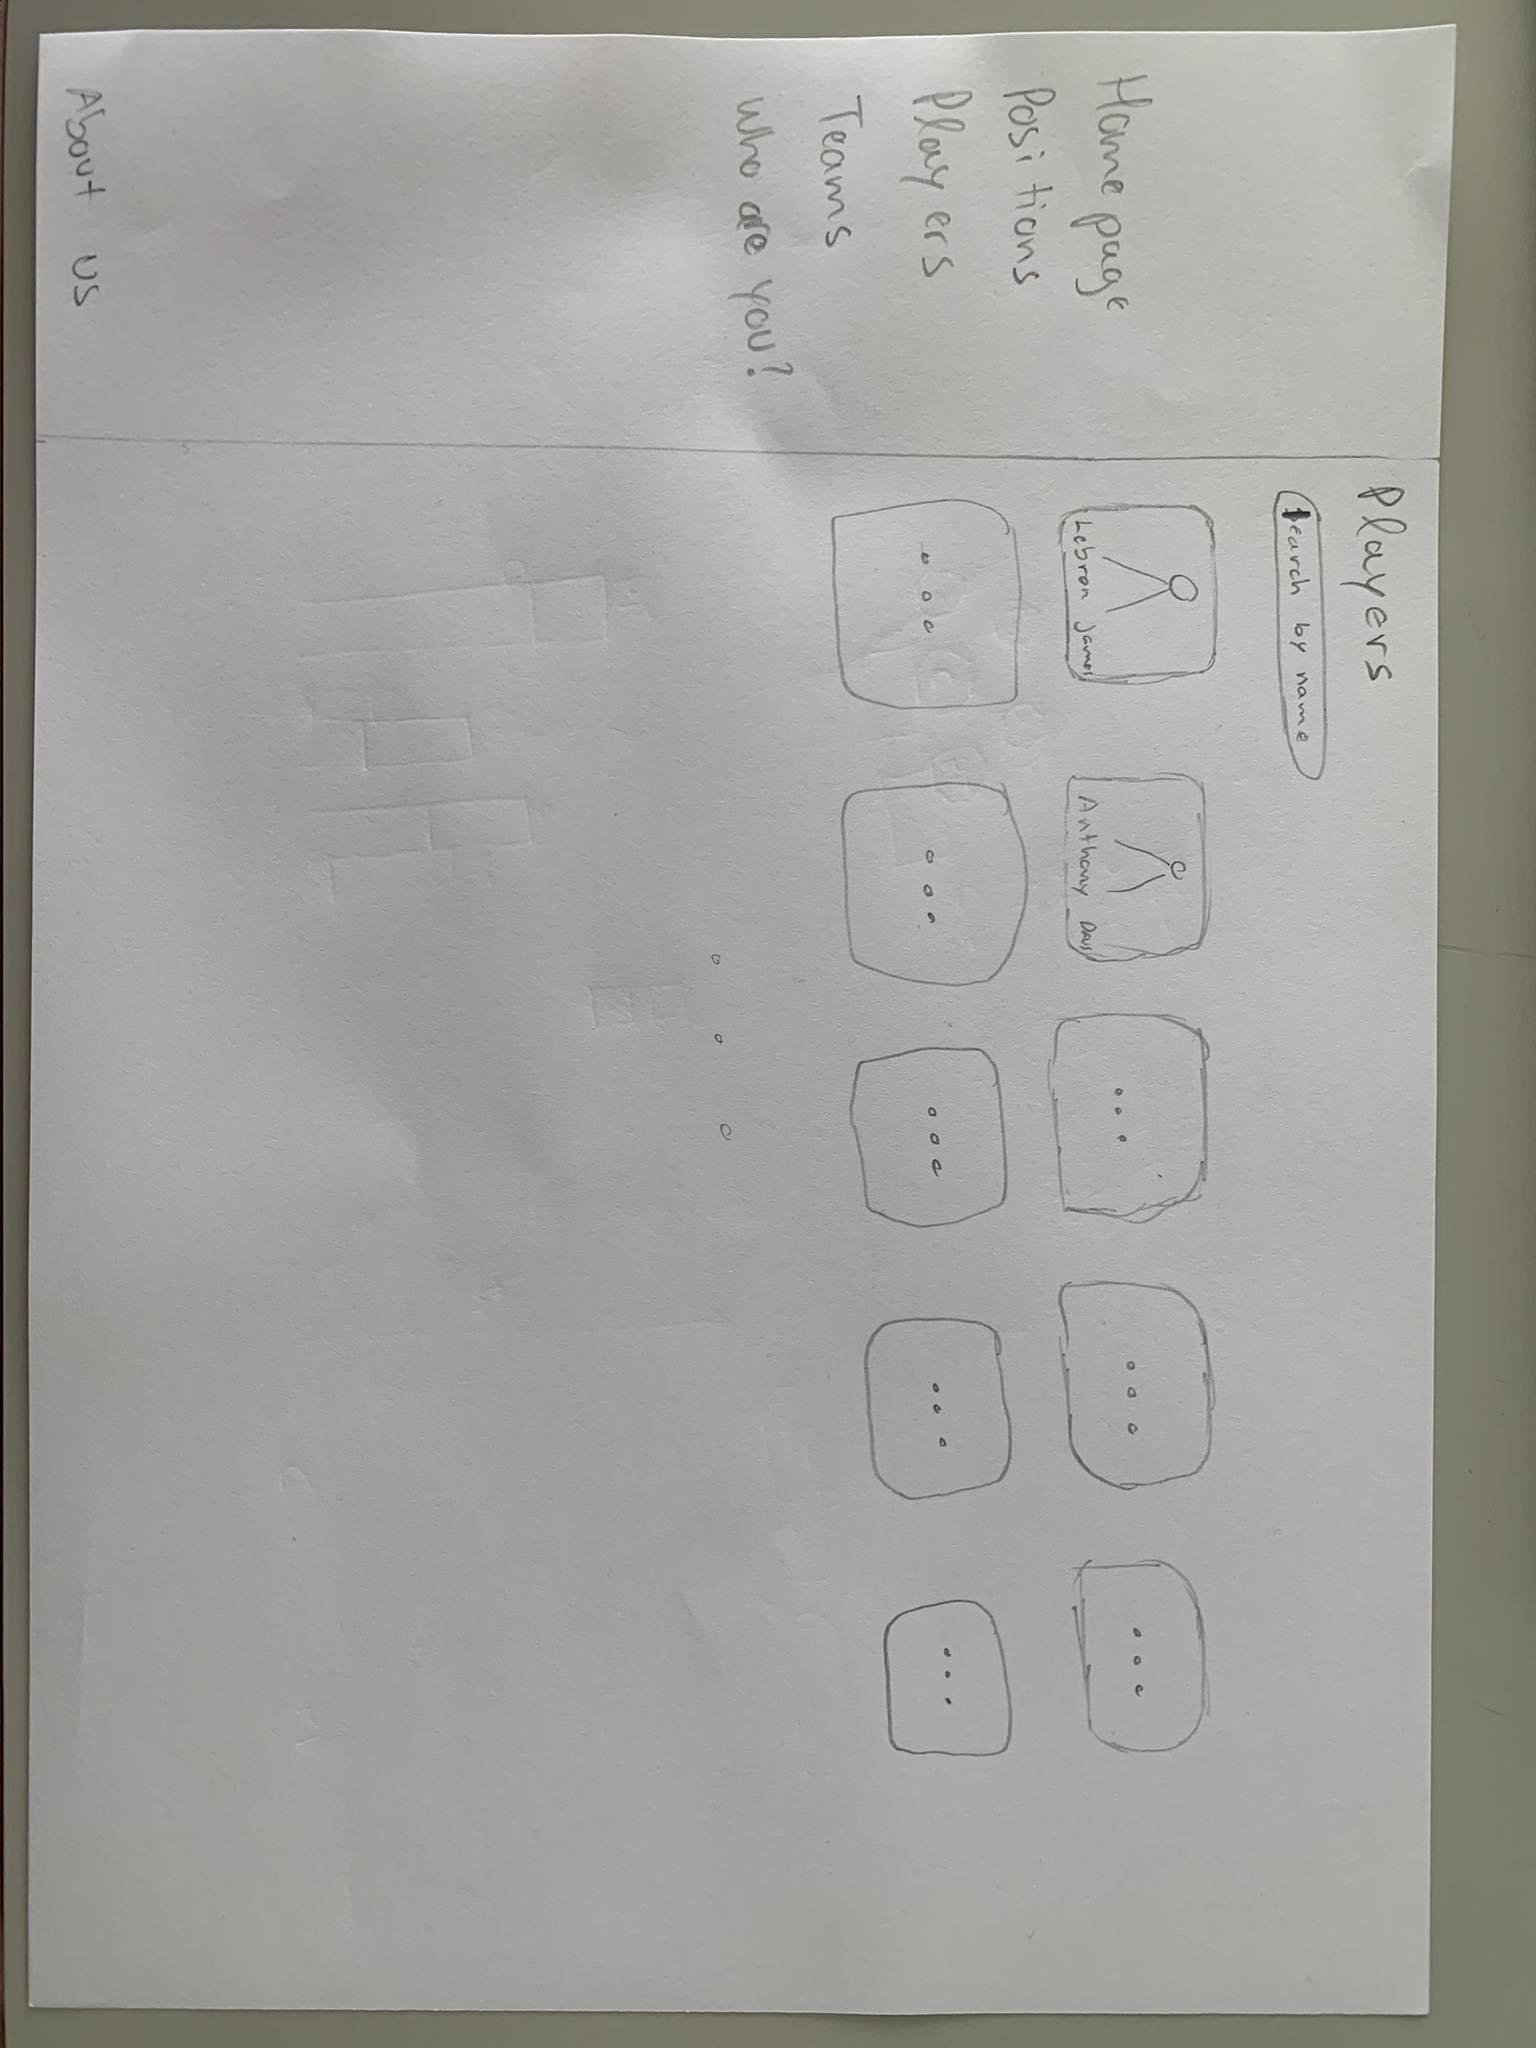 Home page
Positions
Players
Teams
Who are you?
About us
Players
search by name
Lebron James
Anthony Davis